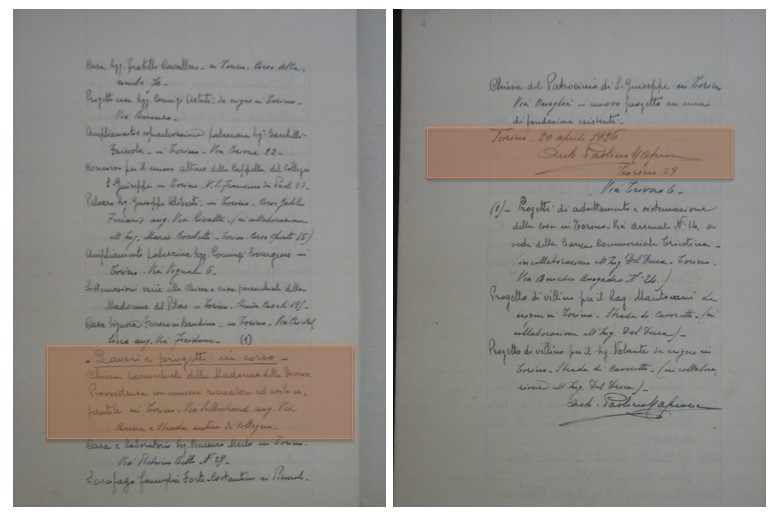 Casa Sigg. fratelli Cavallero - in Torino - Corso Alta-
comba
Progetto casa Sigg. Comigi da erigere in Torino -
Via
Ampliamento e palazzina Sig.
in Torino - Via Savona 22 -
Concorso per il nuovo altare della Cappella del Collegio
S. Giuseppe - in Torino - V. S. Francesco da Paola 23 -
Palazzo Sig. Giuseppe Aliberti - in Torino - Corso Galileo
Ferraris ang. Via - (in collaborazione
all'Ing. Mario - Torino - Corso Oporto 25)
Ampliamento palazzina Sigg. in
Torino - Via Vignale 6 -
Sistemazioni varie alla chiesa e casa parrocchiale della
Madonna del Pilone in Torino - Strada Casale 195 -
Casa Signora Ferrero in - in Torino - Via
ang. Via (1)
- Lavori e progetti in corso -
Chiesa parrocchiale della Madonna della Divina
Provvidenza con annessi ricreatori ed asilo in-
fantile in Torino - Via ang. Via
Carrera e Strada antica di Collegno -
Casa e laboratorio Sig. Vincenzo Merlo in Torino -
Via N° 29 -
Sarcofago famiglia Forti Costantino in
Chiesa del Patrocinio di S. Giuseppe in Torino
Via Oneglia - nuovo progetto su muri
di fondazione esistenti -
Torino - 20 aprile 1926
Arch. Paolino Napione
Torino 29
Via 6 -
(1) - Progetti di adattamento e sistemazione
della casa in Torino - Via Arsenale N° 14, a
sede della Banca Commerciale Triestina -
in collaborazione all'Ing. Del Duca - Torino -
Via Amedeo Avogadro N° 24.)
Progetto di villino per il Rag. Mantovani da
erigere in Torino - Strada di Cavoretto - (in
collaborazione all'Ing. Del Duca) -
Progetto di villino per il Sig. Volante da erigere in
Torino - Strada di Cavoretto - (in collabora-
zione all'Ing. Del Duca) -
Arch. Paolino Napione